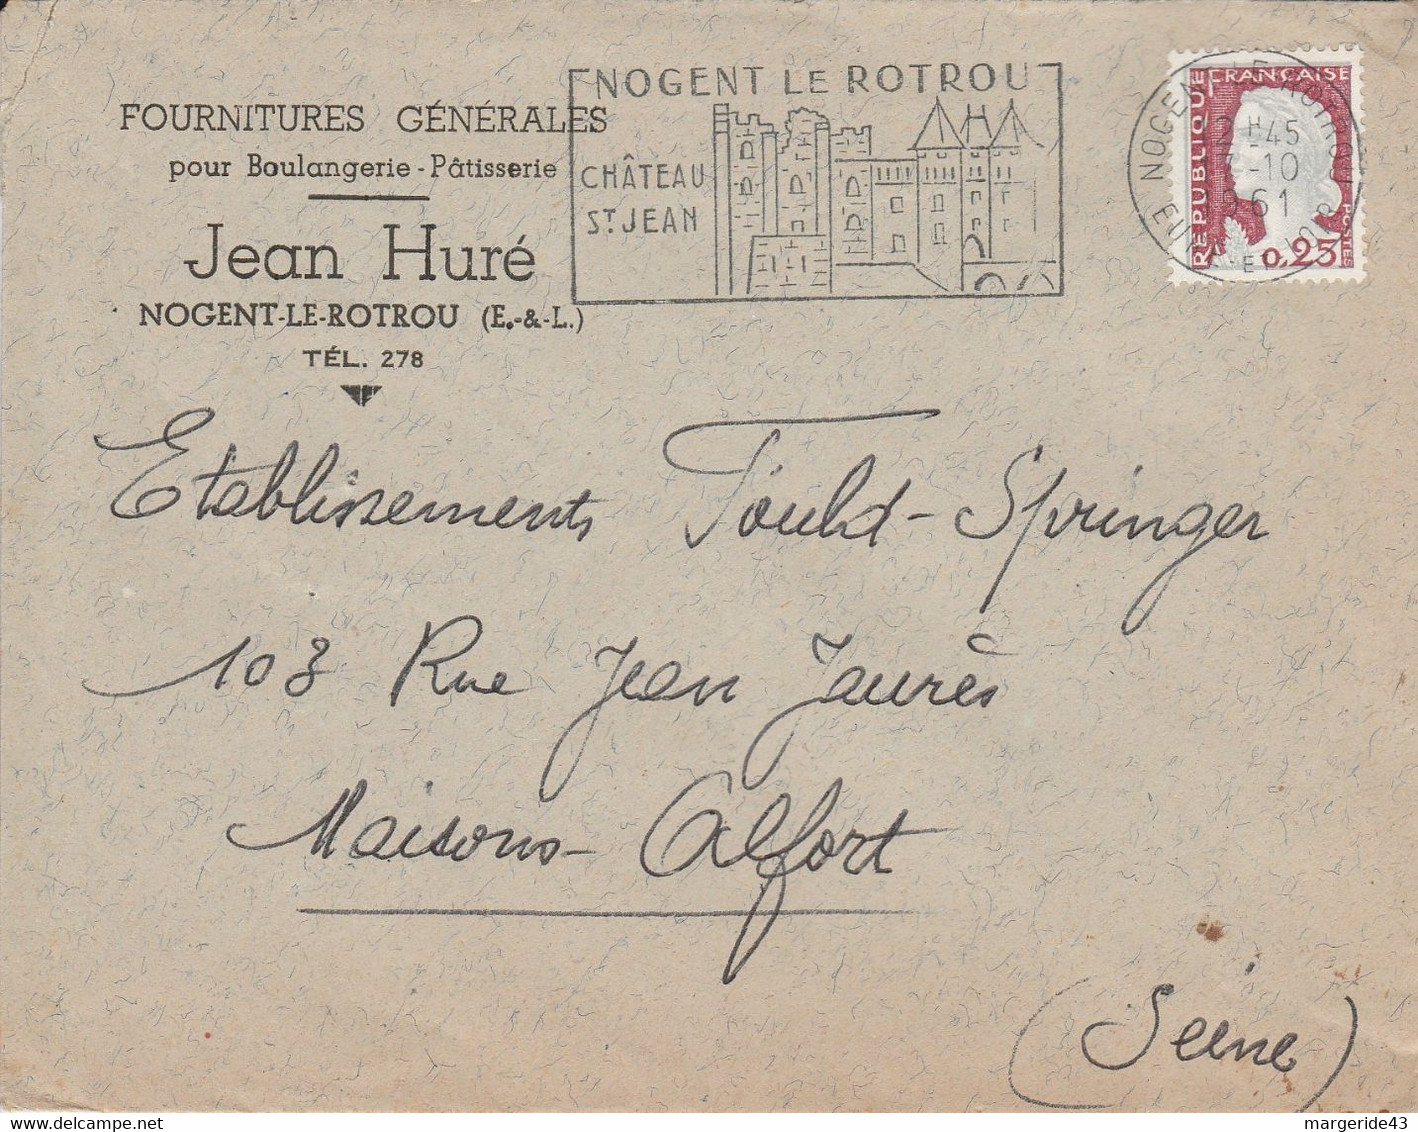 FOURNITURES GÉNÉRALES
pour Boulangerie - Pâtisserie
Jean Huré
NOGENT-LE-ROTROU (E.-&-L.)
TÉL. 278
NOGENT LE ROTROU
CHÂTEAU
ST JEAN
NOGENT LE ROTROU
EURE ET LOIR
45
-10
1961
RÉPUBLIQUE FRANÇAISE
POSTES
0,25
Etablissements Fould-Springer
103 Rue Jean Jaurès
Maisons-Alfort
(Seine)
margeride43
www.delcampe.net